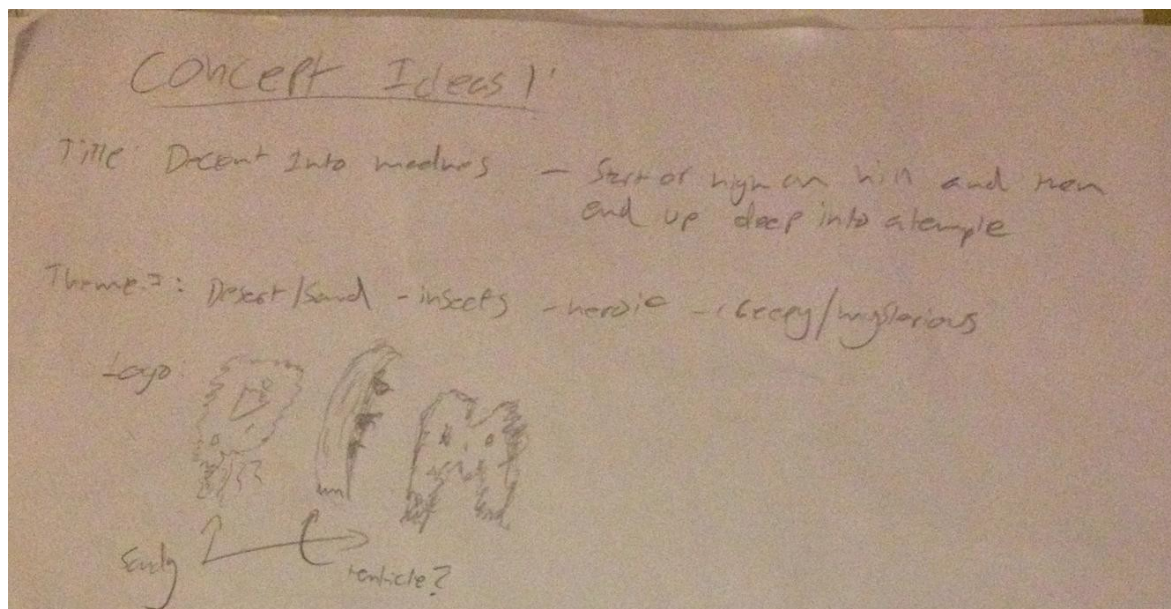 Concept Ideas!
Title: Decent Into madnes – Start of high on hill and then
end up deep into a temple
Theme: Desert/Sand - insects - heroic - creepy/mysterious
Logo:
D I M
Sandy
tenticle?